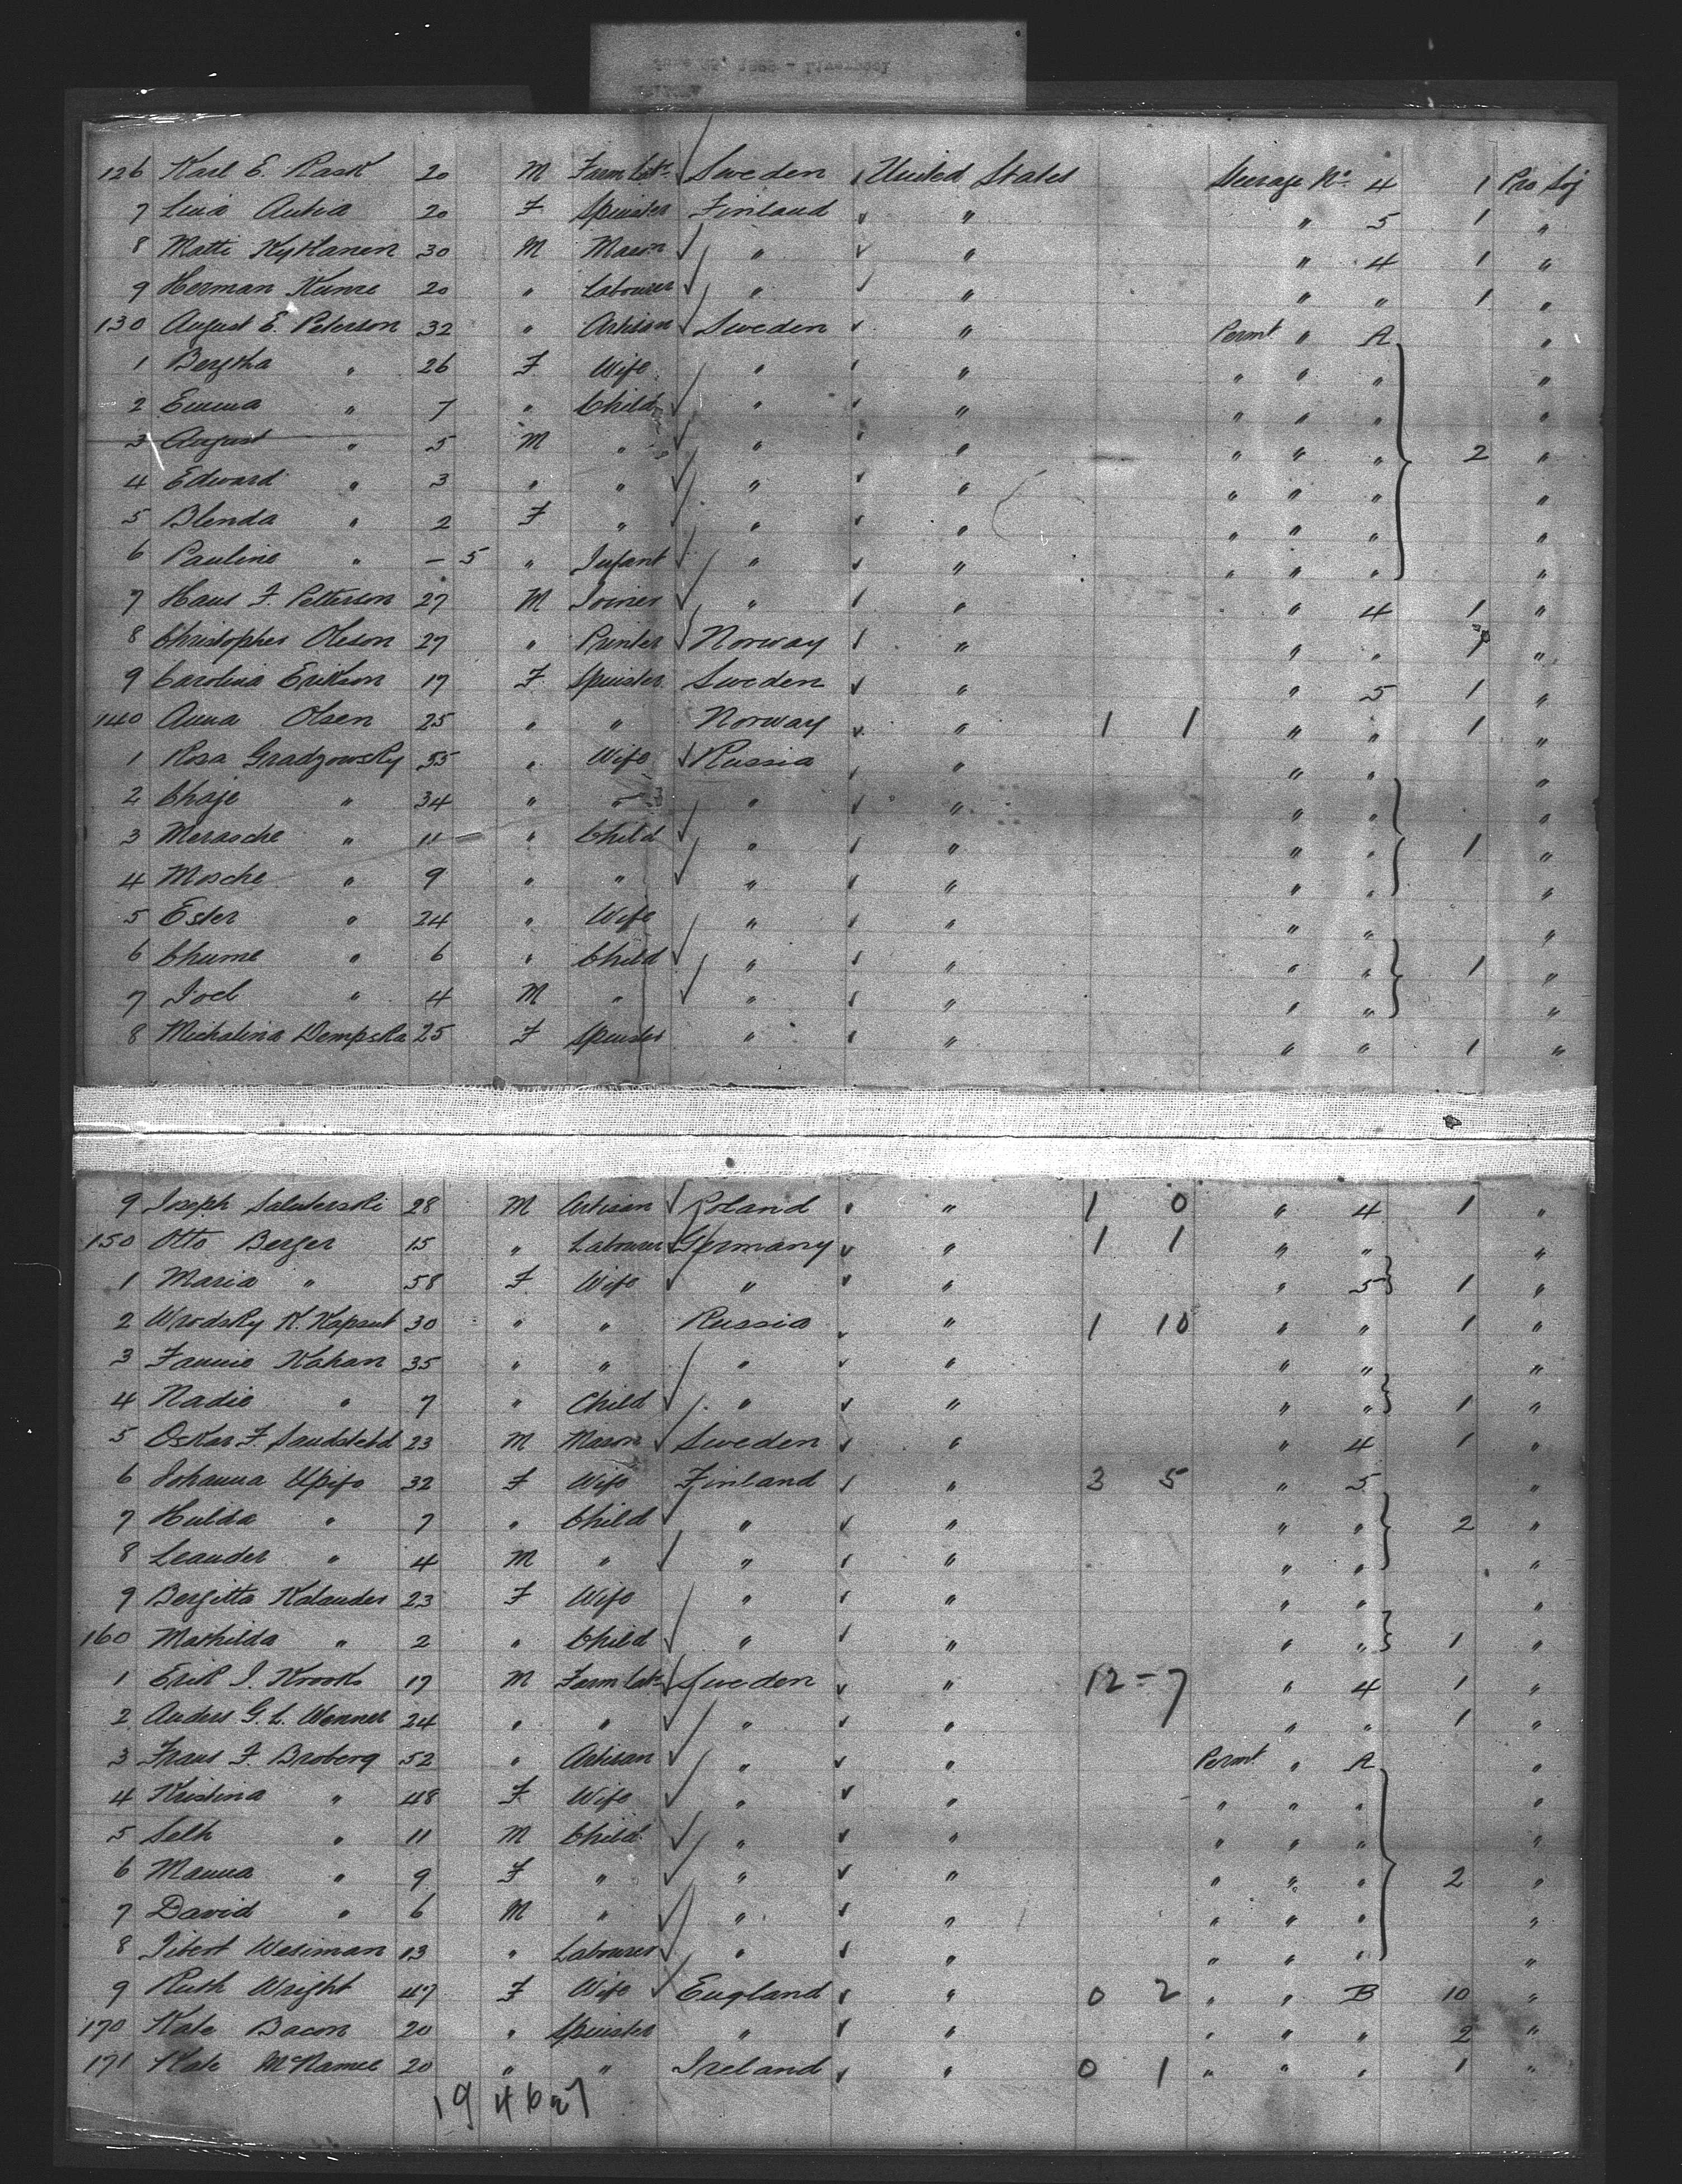 126 Karl E. Rask 20 M Farm Labr Sweden United States Steerage No 4 1 Pro Soj
7 20 F Spinster Finland " " 5 1 "
8 Matti 30 M Mason " " " 4 1 "
9 Herman 20 " Labourer " " " " 1 "
130 August E. Peterson 32 " Artisan Sweden " Permt " A "
1 Bergtha " 26 F Wife " " " " " "
2 Emma " 7 " Child " " " " " "
3 August " 5 M " " " " " " 2 "
4 Edward " 3 " " " " " " " "
5 Blenda " 2 F " " " " " " "
6 Pauline " – 5 " Infant " " " " " "
7 Hans F. Petterson 27 M Joiner " " " 4 1 "
8 Christopher Oleson 27 " Printer Norway " " " 1 "
9 Carolina Erikson 17 F Spinster Sweden " " 5 1 "
140 Anna Olsen 25 " " Norway " 1 1 " " 1 "
1 Rosa Gradzowsky 55 " Wife Russia " " " "
2 Chaje " 34 " " " " " " "
3 Merasche " 11 " Child " " " " 1 "
4 Mosche " 9 " " " " " " "
5 Ester " 24 " Wife " " " " "
6 Chume " 6 " Child " " " " 1 "
7 Joel " 4 M " " " " " "
8 Michalina Dempska 25 F Spinster " " " " 1 "
9 Joseph 28 M Artisan Poland " 1 0 " 4 1 "
150 Otto Berger 15 " Labourer Germany " 1 1 " " "
1 Maria " 58 F Wife " " " 5 1 "
2 30 " " Russia " 1 10 " " 1 "
3 Fannie Kahan 35 " " " " " " "
4 Nadie " 7 " Child " " " " 1 "
5 Oskar F. 23 M Mason Sweden " " 4 1 "
6 Johanna 32 F Wife Finland " 3 5 " 5 "
7 Hulda " 7 " Child " " " " 2 "
8 Leander " 4 M " " " " " "
9 Bergitta Kalander 23 F Wife " " " " "
160 Mathilda " 2 " Child " " " " 1 "
1 Erik J. Krook 17 M Farm Labr Sweden " 12 = 7 " 4 1 "
2 Anders G. L. Wenner 24 " " " " " " 1 "
3 Frans F. Broberg 52 " Artisan " " Permt " A "
4 Kristina " 48 F Wife " " " " " "
5 Seth " 11 M Child " " " " " "
6 Manna " 9 F " " " " " " 2 "
7 David " 6 M " " " " " " "
8 13 " Labourer " " " " " "
9 Ruth Wright 47 F Wife England " 0 2 " " B 10 "
170 Kate Bacon 20 " Spinster " " " " " 2 "
171 Kate McNamee 20 " " Ireland " 0 1 " " " 1 "